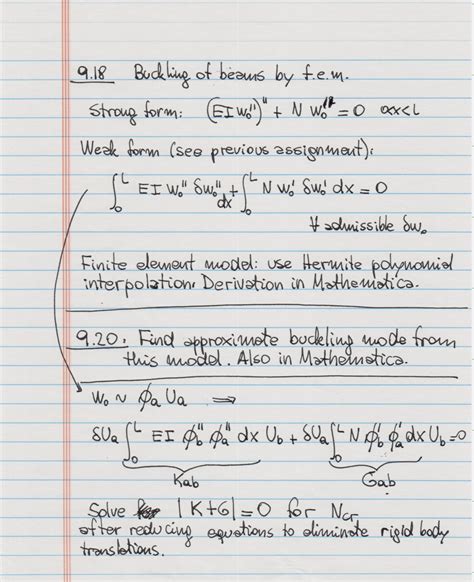 9.18 Buckling of beams by f.e.m.
Strong form: (EI w₀'')'' + N w₀'' = 0 0<x<L
Weak form (see previous assignment):
∫₀ᴸ EI w₀'' δw₀'' dx + ∫₀ᴸ N w₀' δw₀' dx = 0
∀ admissible δw₀
Finite element model: use Hermite polynomial
interpolation. Derivation in Mathematica.
9.20. Find approximate buckling mode from
this model. Also in Mathematica.
w₀ ~ ϕa Ua ⇒
δUa ∫₀ᴸ EI ϕb'' ϕa'' dx Ub + δUa ∫₀ᴸ N ϕb' ϕa' dx Ub = 0
Kab Gab
Solve |K+G| = 0 for Ncr
after reducing equations to eliminate rigid body
translations.